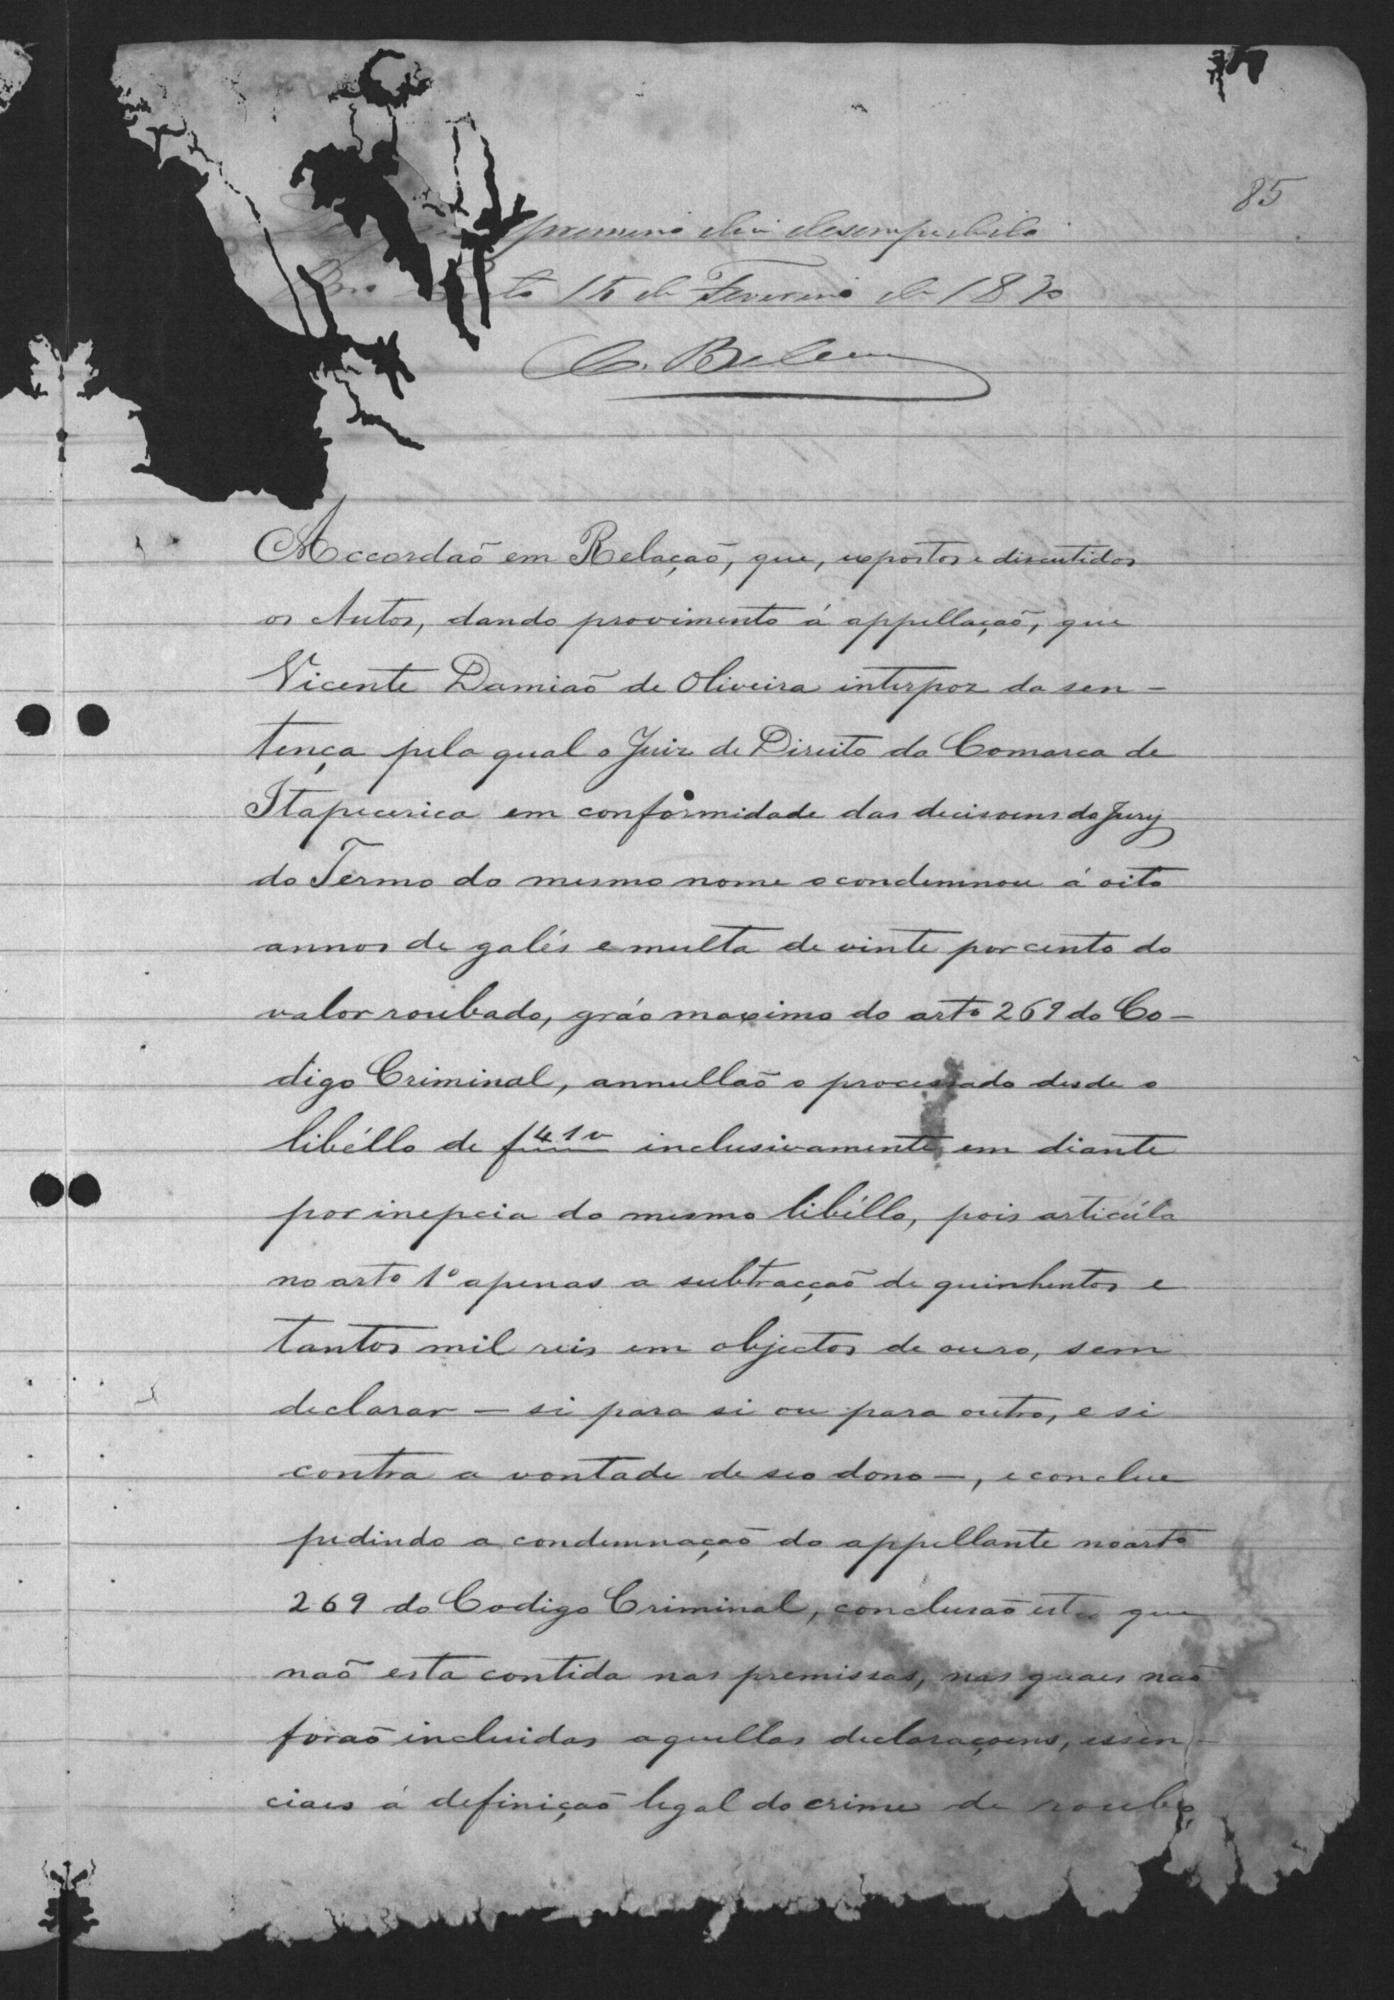 85
primeiro dia desempedido
15 de Fevereiro de 1870
C. Belem
Accordaõ em Relaçaõ, que, expostos e discutidos
os Autos, dando provimento á appellaçaõ, que
Vicente Damiaõ de Oliveira interpoz da sen-
tença pela qual o Juiz de Direito da Comarca de
Itapecerica em conformidade das decisoens do Jury
do Termo do mesmo nome o condemnou á oito
annos de galés e multa de vinte por cento do
valor roubado, gráo maximo do arto 269 do Co-
digo Criminal, annullaõ o processado desde o
libéllo de f 41v inclusivamente em diante
por inepcia do mesmo libéllo, pois articúla
no arto 1º apenas a subtracçaõ de quinhentos e
tantos mil reis em objectos de ouro, sem
declarar - si para si ou para outro, e si
contra a vontade de seo dono -, e conclue
pedindo a condemnaçaõ do appellante no arto
269 do Codigo Criminal, conclusaõ esta que
naõ esta contida nas premissas, nas quaes naõ
foraõ incluidas aquellas declaraçoens, essen-
ciaes á definiçaõ legal do crime de roubo,